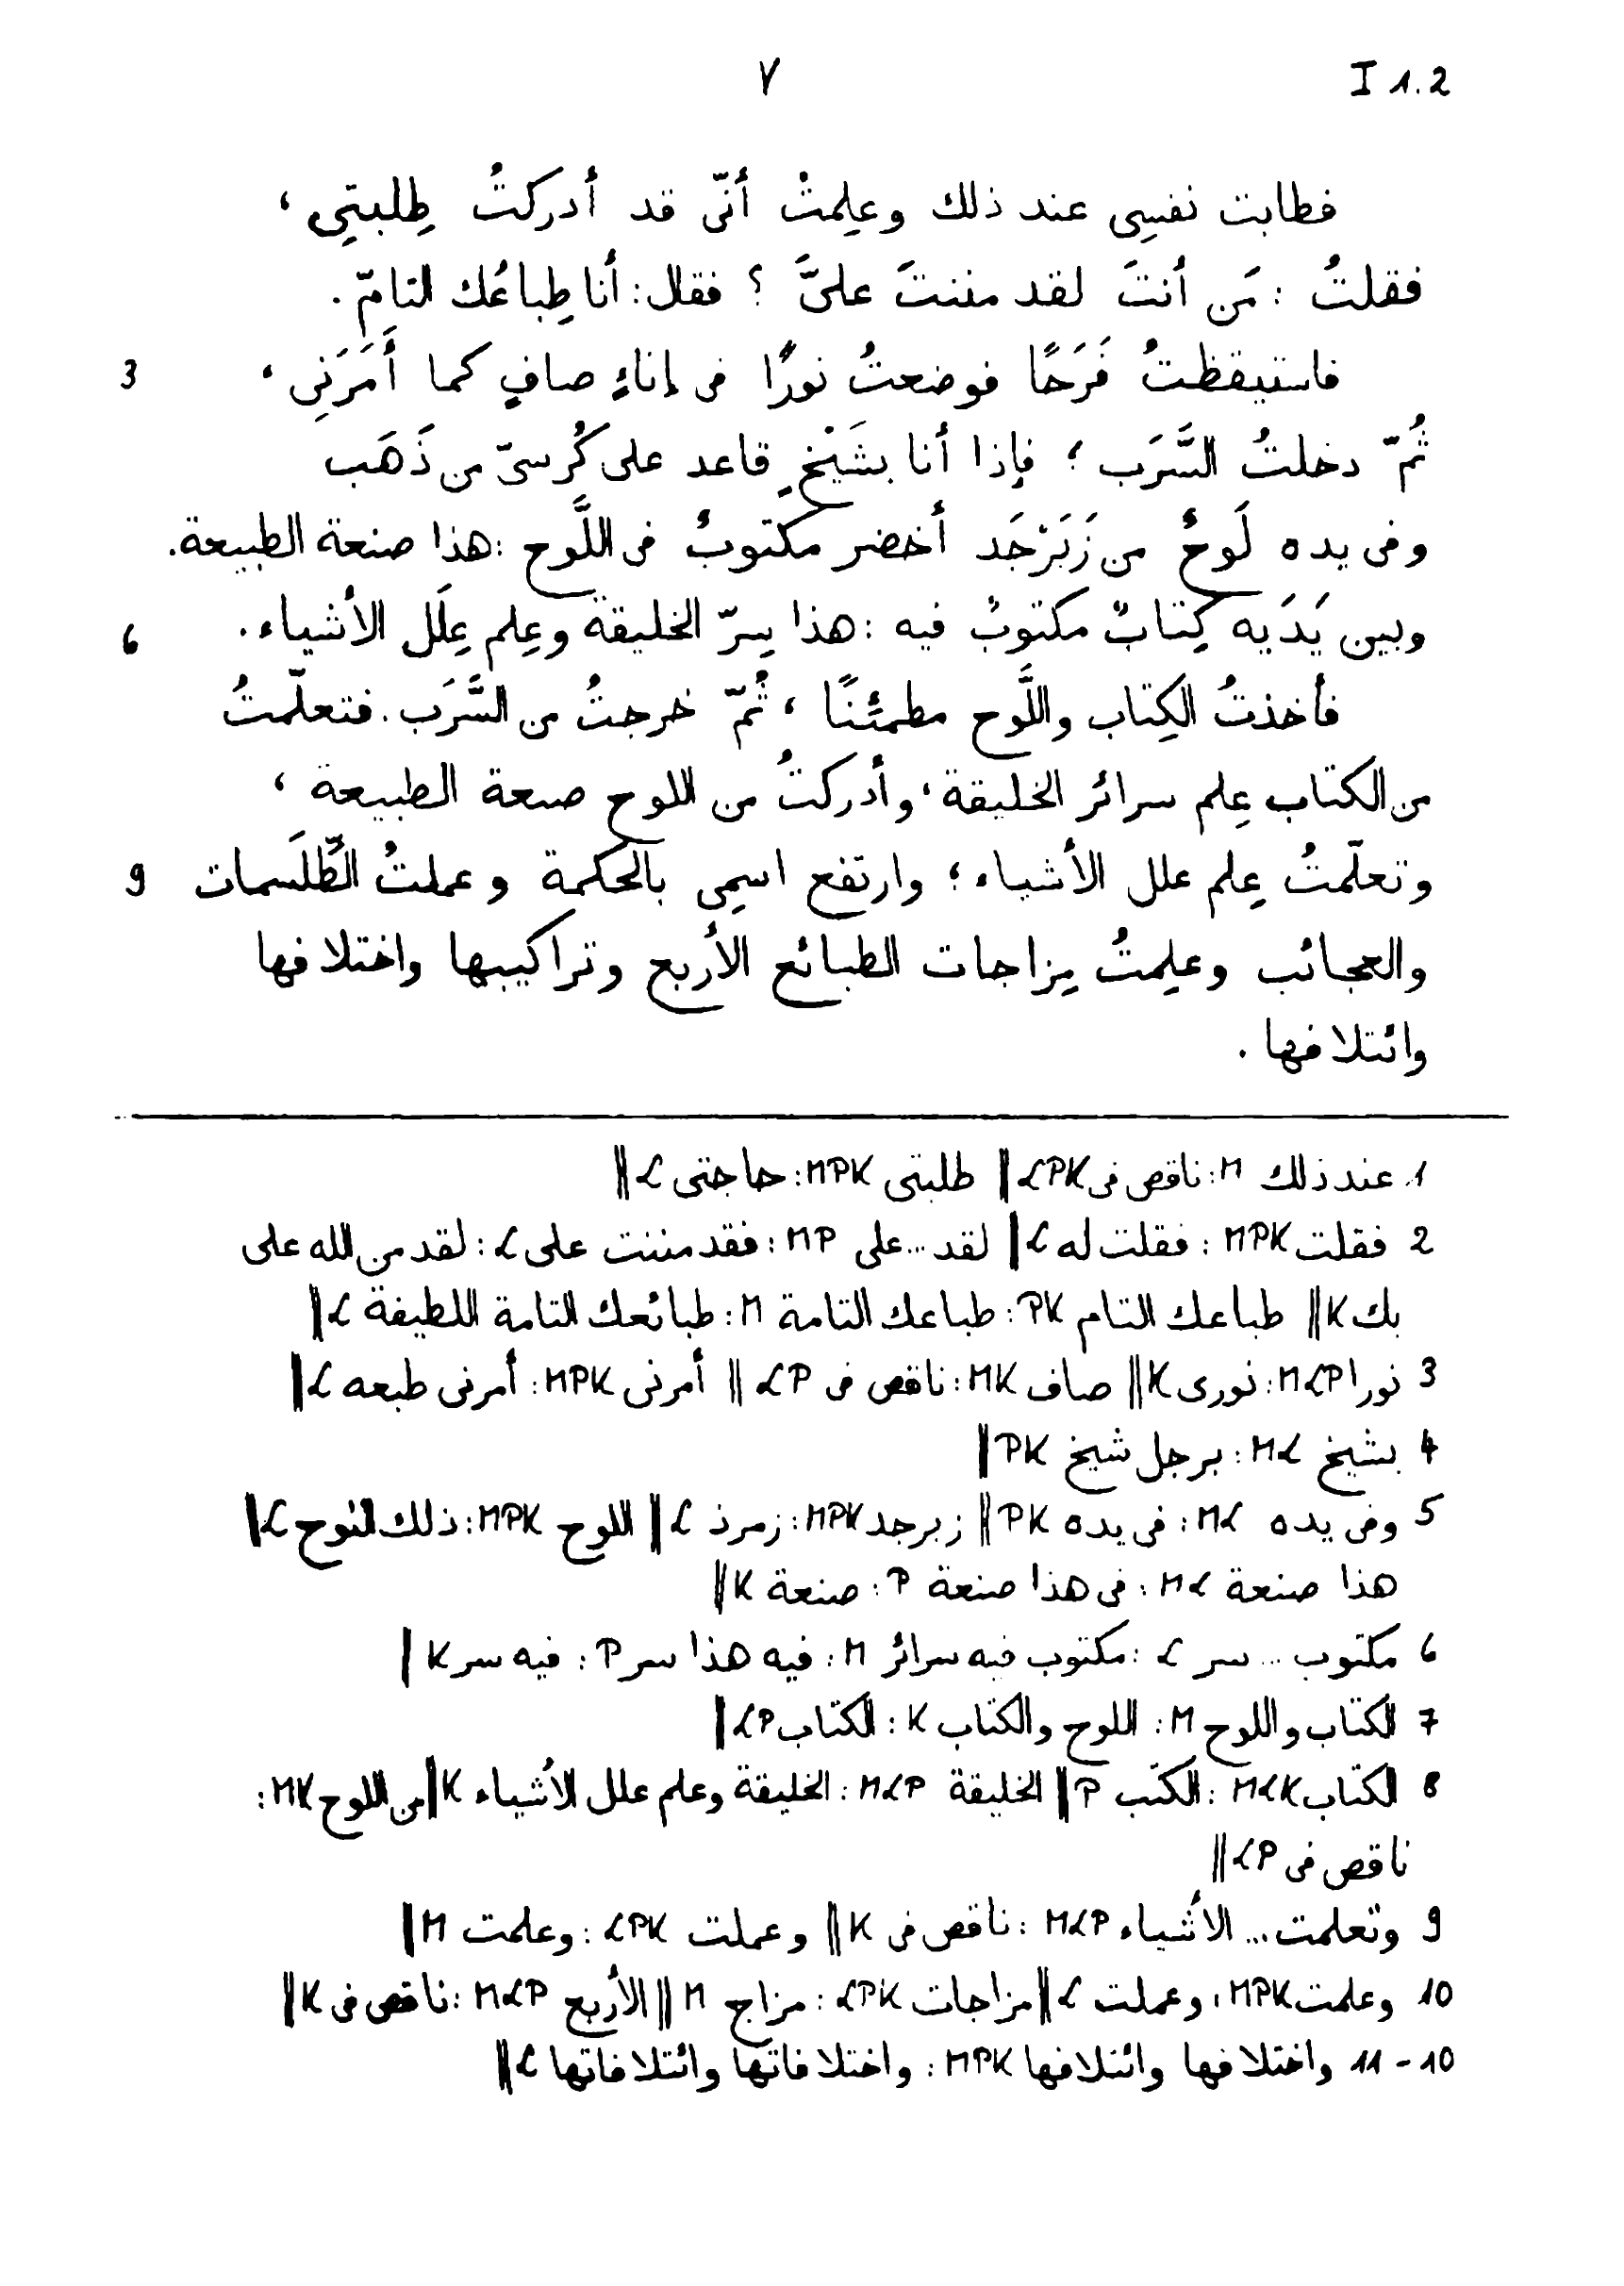 I 1.2
٧
فطابت نفسِى عند ذلك وعلِمتْ أنّى قد أدركتُ طِلبتِى ،
فقلتُ : مَن أنتَ لقد مننتَ علىَّ ؟ فقال : أنا طِباعُك التامّ .
3 فاستيقظتُ فَرَحًا فوضعتُ نورًا فى إناءٍ صافٍ كما أَمَرَنِى ،
ثُمّ دخلتُ السَّرَب ؛ فإذا أنا بشَيْخٍ قاعد على كُرسىّ من ذَهَب
وفى يده لَوحٌ من زَبَرْجَد أخضر مكتوبٌ فى اللَّوح : هذا صنعة الطبيعة .
6 وبين يَدَيه كِتابٌ مكتوبٌ فيه : هذا سِرّ الخليقة وعِلم عِلَل الأشياء .
فأخذتُ الكِتاب واللَّوح مطمئنًا ، ثُمّ خرجتُ من السَّرَب . فتعلّمتُ
من الكتاب عِلم سرائر الخليقة ، وأدركتُ من اللوح صنعة الطبيعة ،
9 وتعلّمتُ عِلم علل الأشياء ؛ وارتفع اسمِى بالحكمة وعملتُ الطِّلَسمات
والعجائب وعلِمتُ مِزاجات الطبائع الأربع وتراكيبها واختلافها
وائتلافها .
1 عند ذلك M : ناقص فى LPK || طلبتى MPK : حاجتى L ||
2 فقلت MPK : فقلت له L || لقد ... على MP : فقد مننت على L : لقد من الله على
بك K || طباعك التام PK : طباعك التامة M : طبائعك التامة اللطيفة L ||
3 نورا MLP : نورى K || صاف MK : ناقص فى LP || أمرنى MPK : أمرنى طبعه L ||
4 بشيخ ML : برجل شيخ PK ||
5 وفى يده ML : فى يده PK || زبرجد MPK : زمرذ L || اللوح MPK : ذلك اللوح L ||
هذا صنعة ML : فى هذا صنعة P : صنعة K ||
6 مكتوب ... سر L : مكتوب فيه سرائر M : فيه هذا سر P : فيه سر K |
7 الكتاب واللوح M : اللوح والكتاب K : الكتاب LP ||
8 الكتاب MLK : الكتب P || الخليقة MLP : الخليقة وعلم علل الأشياء K || من اللوح MK :
ناقص فى LP ||
9 وتعلمت ... الأشياء MLP : ناقص فى K || وعملت LPK : وعلمت M ||
10 وعلمت MPK : وعملت L || مزاجات LPK : مزاج M || الأربع MLP : ناقص فى K ||
10 - 11 واختلافها وائتلافها MPK : واختلافاتها وائتلافاتها L ||